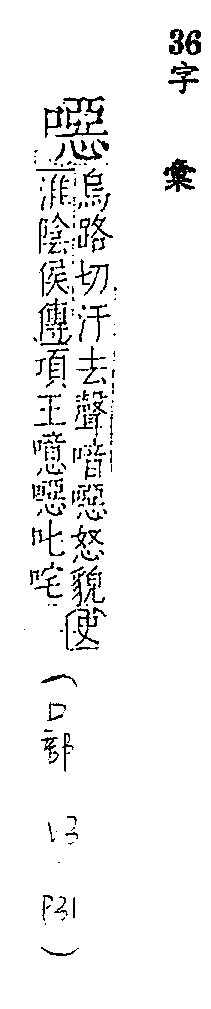 36字彙
噁
烏路切汙去聲喑噁怒貌史
淮陰侯傳項王噫噁叱咤
(口部 13. P31)